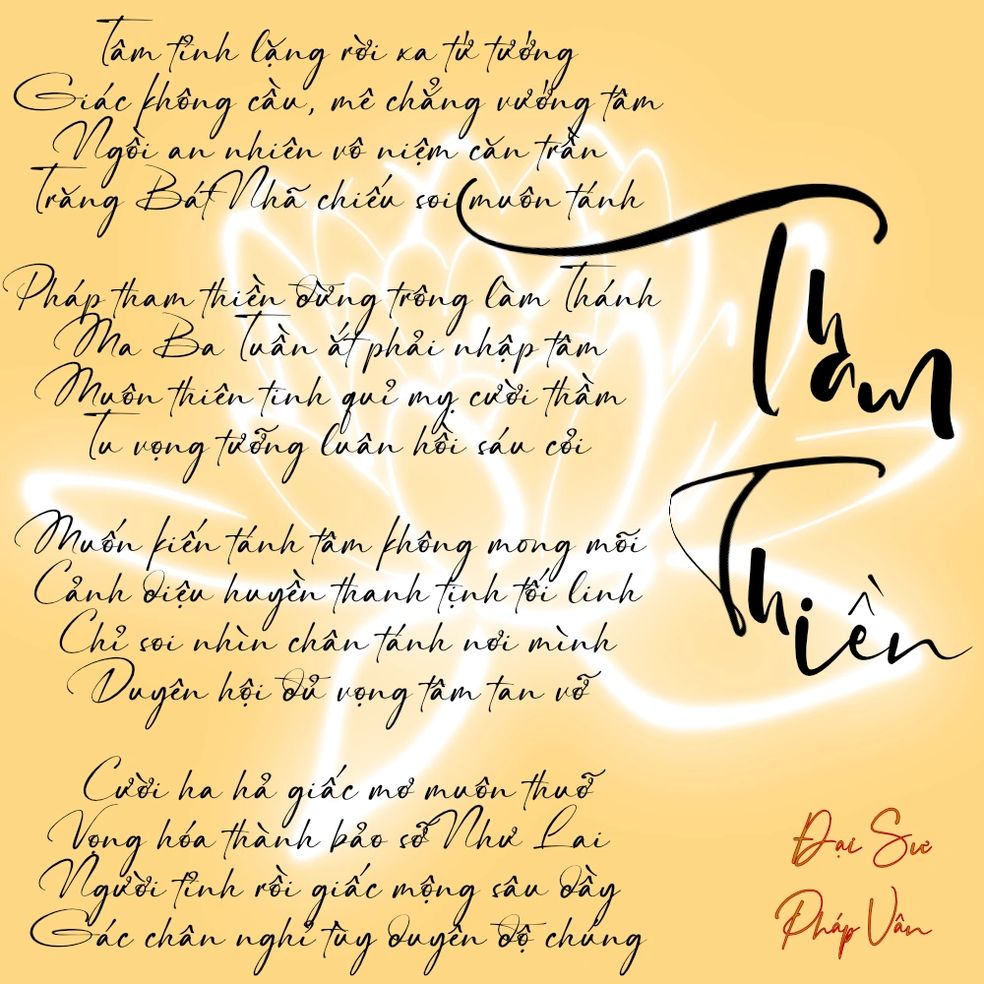 Tâm tỉnh lặng rời xa tư tưởng
Giác không cầu, mê chẳng vướng tâm
Ngồi an nhiên vô niệm căn trần
Trăng Bát Nhã chiếu soi muôn tánh
Pháp tham thiền đừng trông làm Thánh
Ma Ba Tuần ắt phải nhập tâm
Muôn thiên tinh quỉ mỵ cười thầm
Tu vọng tưởng luân hồi sáu cỏi
Muốn kiến tánh tâm không mong mõi
Cảnh diệu huyền thanh tịnh tối linh
Chỉ soi nhìn chân tánh nơi mình
Duyên hội đủ vọng tâm tan vỡ
Cười ha hả giấc mơ muôn thuở
Vọng hóa thành bảo sở Như Lai
Người tỉnh rồi giấc mộng sâu dầy
Gác chân nghỉ tùy duyên độ chúng
Tham
Thiền
Đại Sư
Pháp Vân